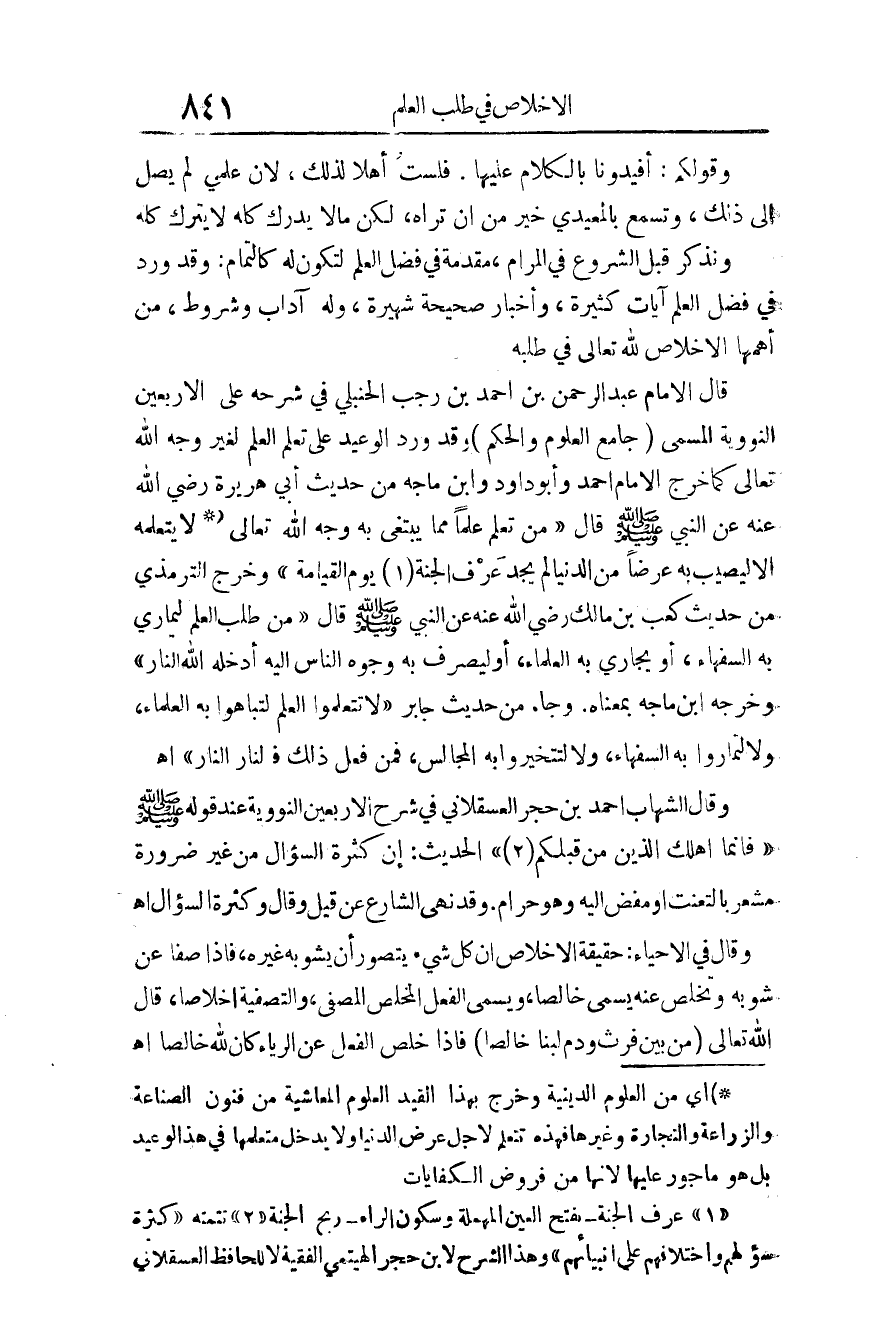 الاخلاص في طلب العلم ٨٤١
وقولكم : أفيدونا بالكلام عليها . فلست أهلا لذلك ، لان علمي لم يصل
الى ذلك ، وتسمع بالمعيدي خير من ان تراه ، لكن مالا يدرك كله لا يترك كله
ونذكر قبل الشروع في المرام ، مقدمة في فضل العلم لتكون له كالتمام : وقد ورد
في فضل العلم آيات كثيرة ، وأخبار صحيحة شهيرة ، وله آداب وشروط ، من
أهمها الاخلاص لله تعالى في طلبه
قال الامام عبدالرحمن بن احمد بن رجب الحنبلي في شرحه على الاربعين
النووية المسمى ( جامع العلوم والحكم ) وقد ورد الوعيد على تعلم العلم لغير وجه الله
تعالى كما خرج الامام احمد وأبو داود وابن ماجه من حديث أبي هريرة رضي الله
عنه عن النبي ﷺ قال « من تعلم علماً مما يبتغى به وجه الله تعالى *) لا يتعلمه
الا ليصيب به عرضاً من الدنيا لم يجد عَرْف الجنة (١) يوم القيامة » وخرج الترمذي
من حديث كعب بن مالك رضي الله عنه عن النبي ﷺ قال « من طلب العلم ليماري
به السفهاء ، أو يجاري به العلماء ، أو ليصرف به وجوه الناس اليه أدخله الله النار »
وخرجه ابن ماجه بمعناه . وجاء من حديث جابر « لا تتعلموا العلم لتباهوا به العلماء ،
ولا لتماروا به السفهاء ، ولا لتتخيروا به المجالس ، فمن فعل ذلك فالنار النار » اه
وقال الشهاب احمد بن حجر العسقلاني في شرح الاربعين النووية عند قوله ﷺ
« فانما اهلك الذين من قبلكم (٢) » الحديث : إن كثرة السؤال من غير ضرورة
مشعر بالتعنت او مفض اليه وهو حرام . وقد نهى الشارع عن قيل وقال وكثرة السؤال اه
وقال في الاحياء : حقيقة الاخلاص ان كل شيء يتصور أن يشوبه غيره ، فاذا صفا عن
شوبه وتخلص عنه يسمى خالصا ، ويسمى الفعل المخلص المصفى ، والتصفية اخلاصا ، قال
الله تعالى ( من بين فرث ودم لبنا خالصا ) فاذا خلص الفعل عن الرياء كان لله خالصا اه
*) اي من العلوم الدينية وخرج بهذا القيد العلوم المعاشية من فنون الصناعة
والزراعة والتجارة وغيرها فهذه تتعلم لاجل عرض الدنيا ولا يدخل متعلمها في هذا الوعيد
بل هو ماجور عليها لانها من فروض الكفايات
« ١ » عرف الجنة ـ بفتح العين المهملة وسكون الراء ـ ريح الجنة « ٢ » تتمته « كثرة
سؤالهم واختلافهم على انبيائهم » وهذا الشرح لابن حجر الهيتمي الفقيه لا للحافظ العسقلاني